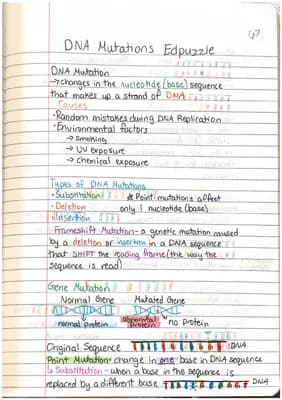 67
DNA Mutations Edpuzzle
DNA Mutation
→ changes in the nucleotide (base) sequence
that makes up a strand of DNA
Causes
• Random mistakes during DNA Replication
• Environmental factors
→ Smoking
→ UV exposure
→ chemical exposure
Types of DNA Mutations
• Substitution * Point mutations affect
• Deletion only 1 nucleotide (base)
• Insertion
Frameshift Mutation - a genetic mutation caused
by a deletion or insertion in a DNA sequence
that SHIFT the reading frame (the way the
sequence is read)
Gene Mutation
Normal Gene Mutated Gene
normal protein abnormal protein no protein
Original Sequence DNA
Point Mutation - change in one base in DNA sequence
↳ Substitution - when a base in the sequence is
replaced by a different base DNA